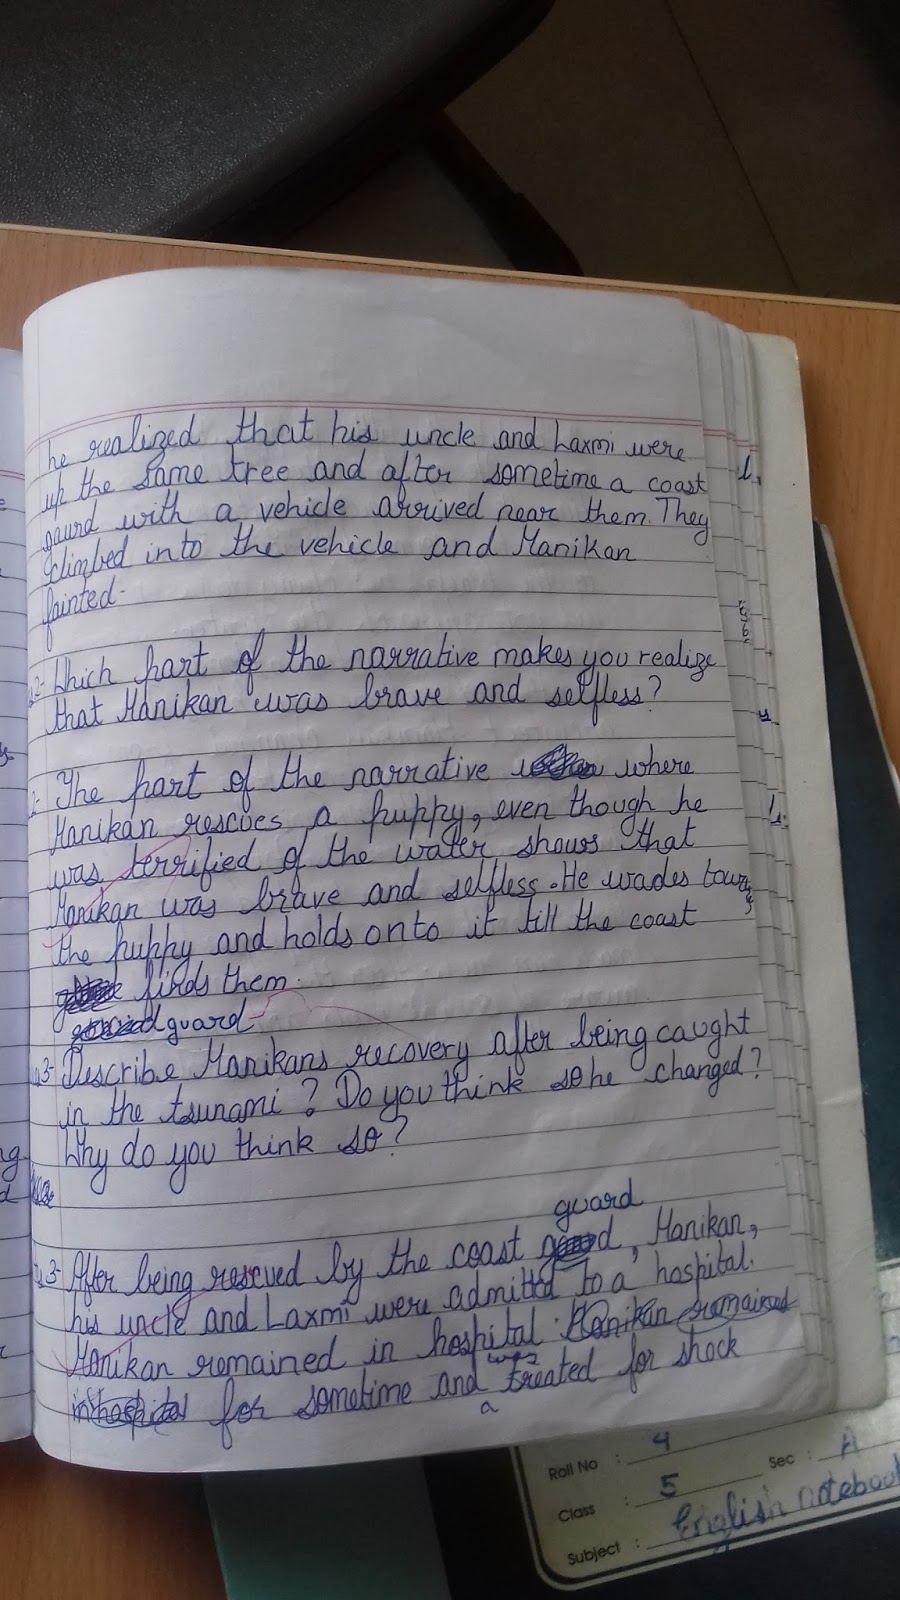 he realized that his uncle and Laxmi were
up the same tree and after sometime a coast
gaurd with a vehicle arrived near them. They
climbed into the vehicle and Manikan
fainted.
2- Which part of the narrative makes you realize
that Manikan was brave and selfless?
The part of the narrative where
Manikan rescues a puppy, even though he
was terrified of the water shows that
Manikan was brave and selfless. He wades towards
the puppy and holds onto it till the coast
finds them.
guard
3- Describe Manikans recovery after being caught
in the tsunami? Do you think so he changed?
Why do you think so?
guard
3- After being rescued by the coast, Manikan,
his uncle and Laxmi were admitted to a hospital.
Manikan remained in hospital. Manikan remained
was
in hospital for sometime and treated for shock
Roll No : 4 Sec : A
Class : 5
Subject : English notebook